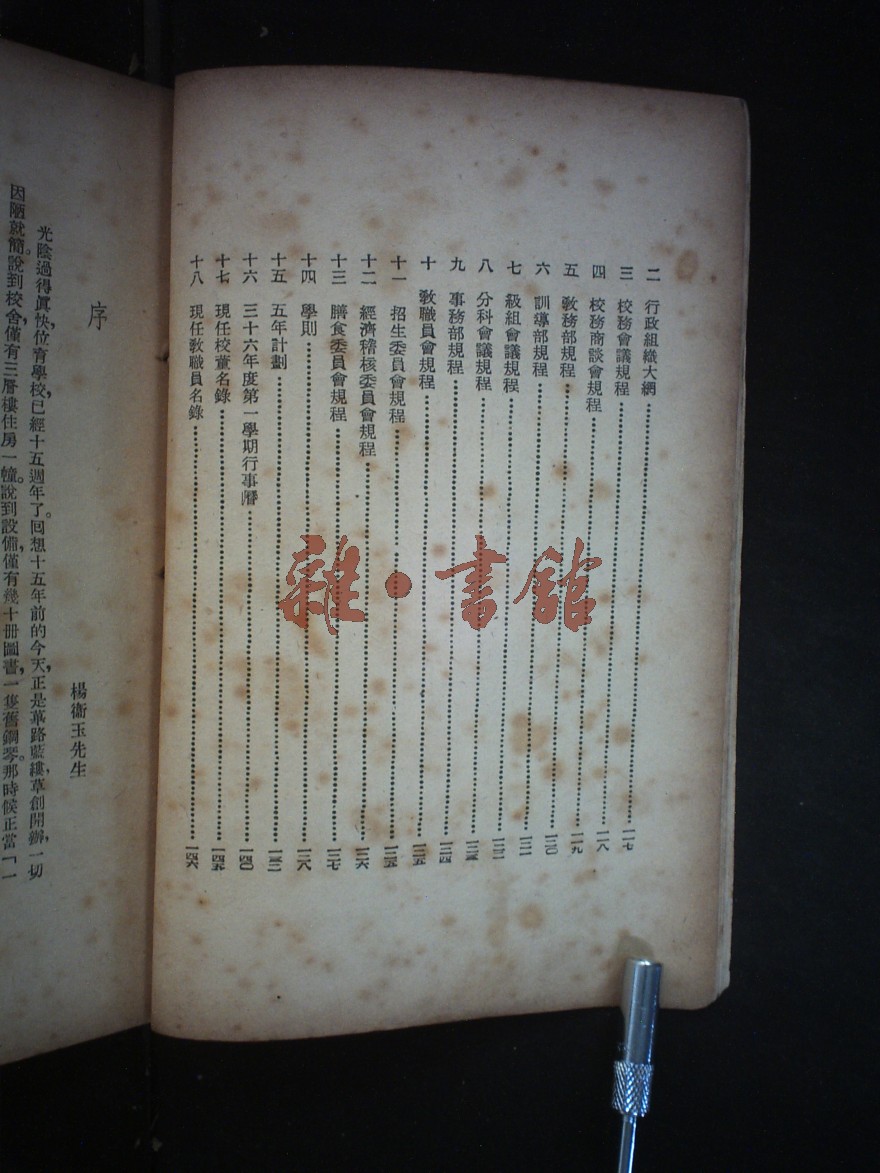 二 行政組織大綱 一一七
三 校務會議規程 一一八
四 校務商談會規程 一一九
五 教務部規程 一二〇
六 訓導部規程 一二一
七 級組會議規程 一二二
八 分科會議規程 一二三
九 事務部規程 一二四
十 教職員會規程 一二五
十一 招生委員會規程 一二五
十二 經濟稽核委員會規程 一二六
十三 膳食委員會規程 一二七
十四 學則 一二八
十五 五年計劃 一三二
十六 三十六年度第一學期行事曆 一四〇
十七 現任校董名錄 一四五
十八 現任教職員名錄 一四六
序
楊衞玉先生
光陰過得眞快,位育學校,已經十五週年了。囘想十五年前的今天,正是蓽路藍縷,草創開辦,一切
因陋就簡。說到校舍,僅有三層樓住房一幢。說到設備,僅有幾十冊圖書,一隻舊鋼琴。那時候正當「一
雜·書館